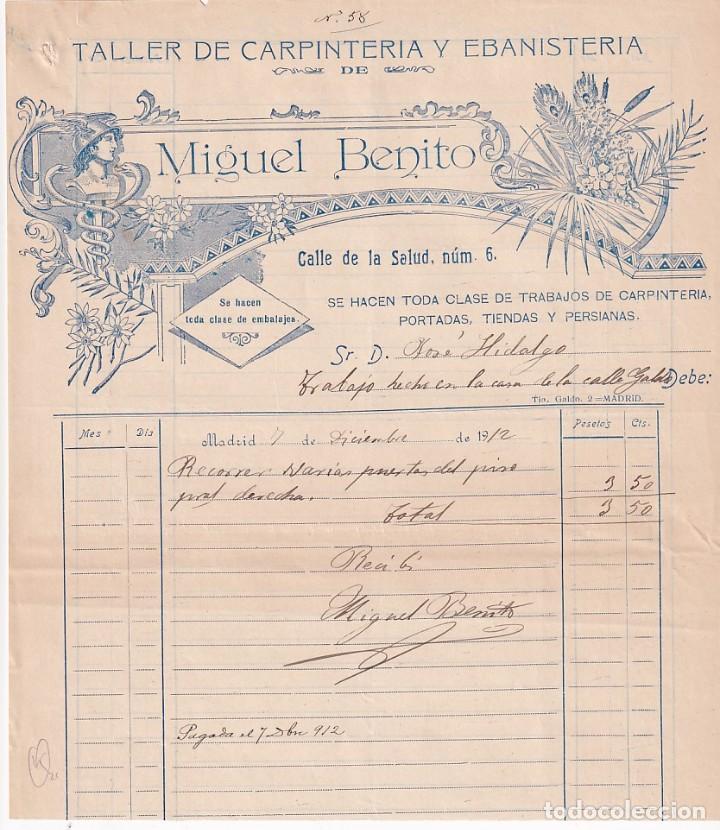 Nº 58
TALLER DE CARPINTERIA Y EBANISTERIA
DE
Miguel Benito
Calle de la Salud, núm. 6.
Se hacen
toda clase de embalajes.
SE HACEN TODA CLASE DE TRABAJOS DE CARPINTERIA,
PORTADAS, TIENDAS Y PERSIANAS.
Sr. D. José Hidalgo
Trabajo hecho en la casa de la calle Galdo Debe:
Tip. Galdo, 2=MADRID.
Mes Día Pesetas Cts.
Madrid 7 de Diciembre de 1912
Recorrer varias puertas del piso
pral derecha. 3 50
Total 3 50
Recibí
Miguel Benito
Pagada el 7 Dbre 912
todocoleccion